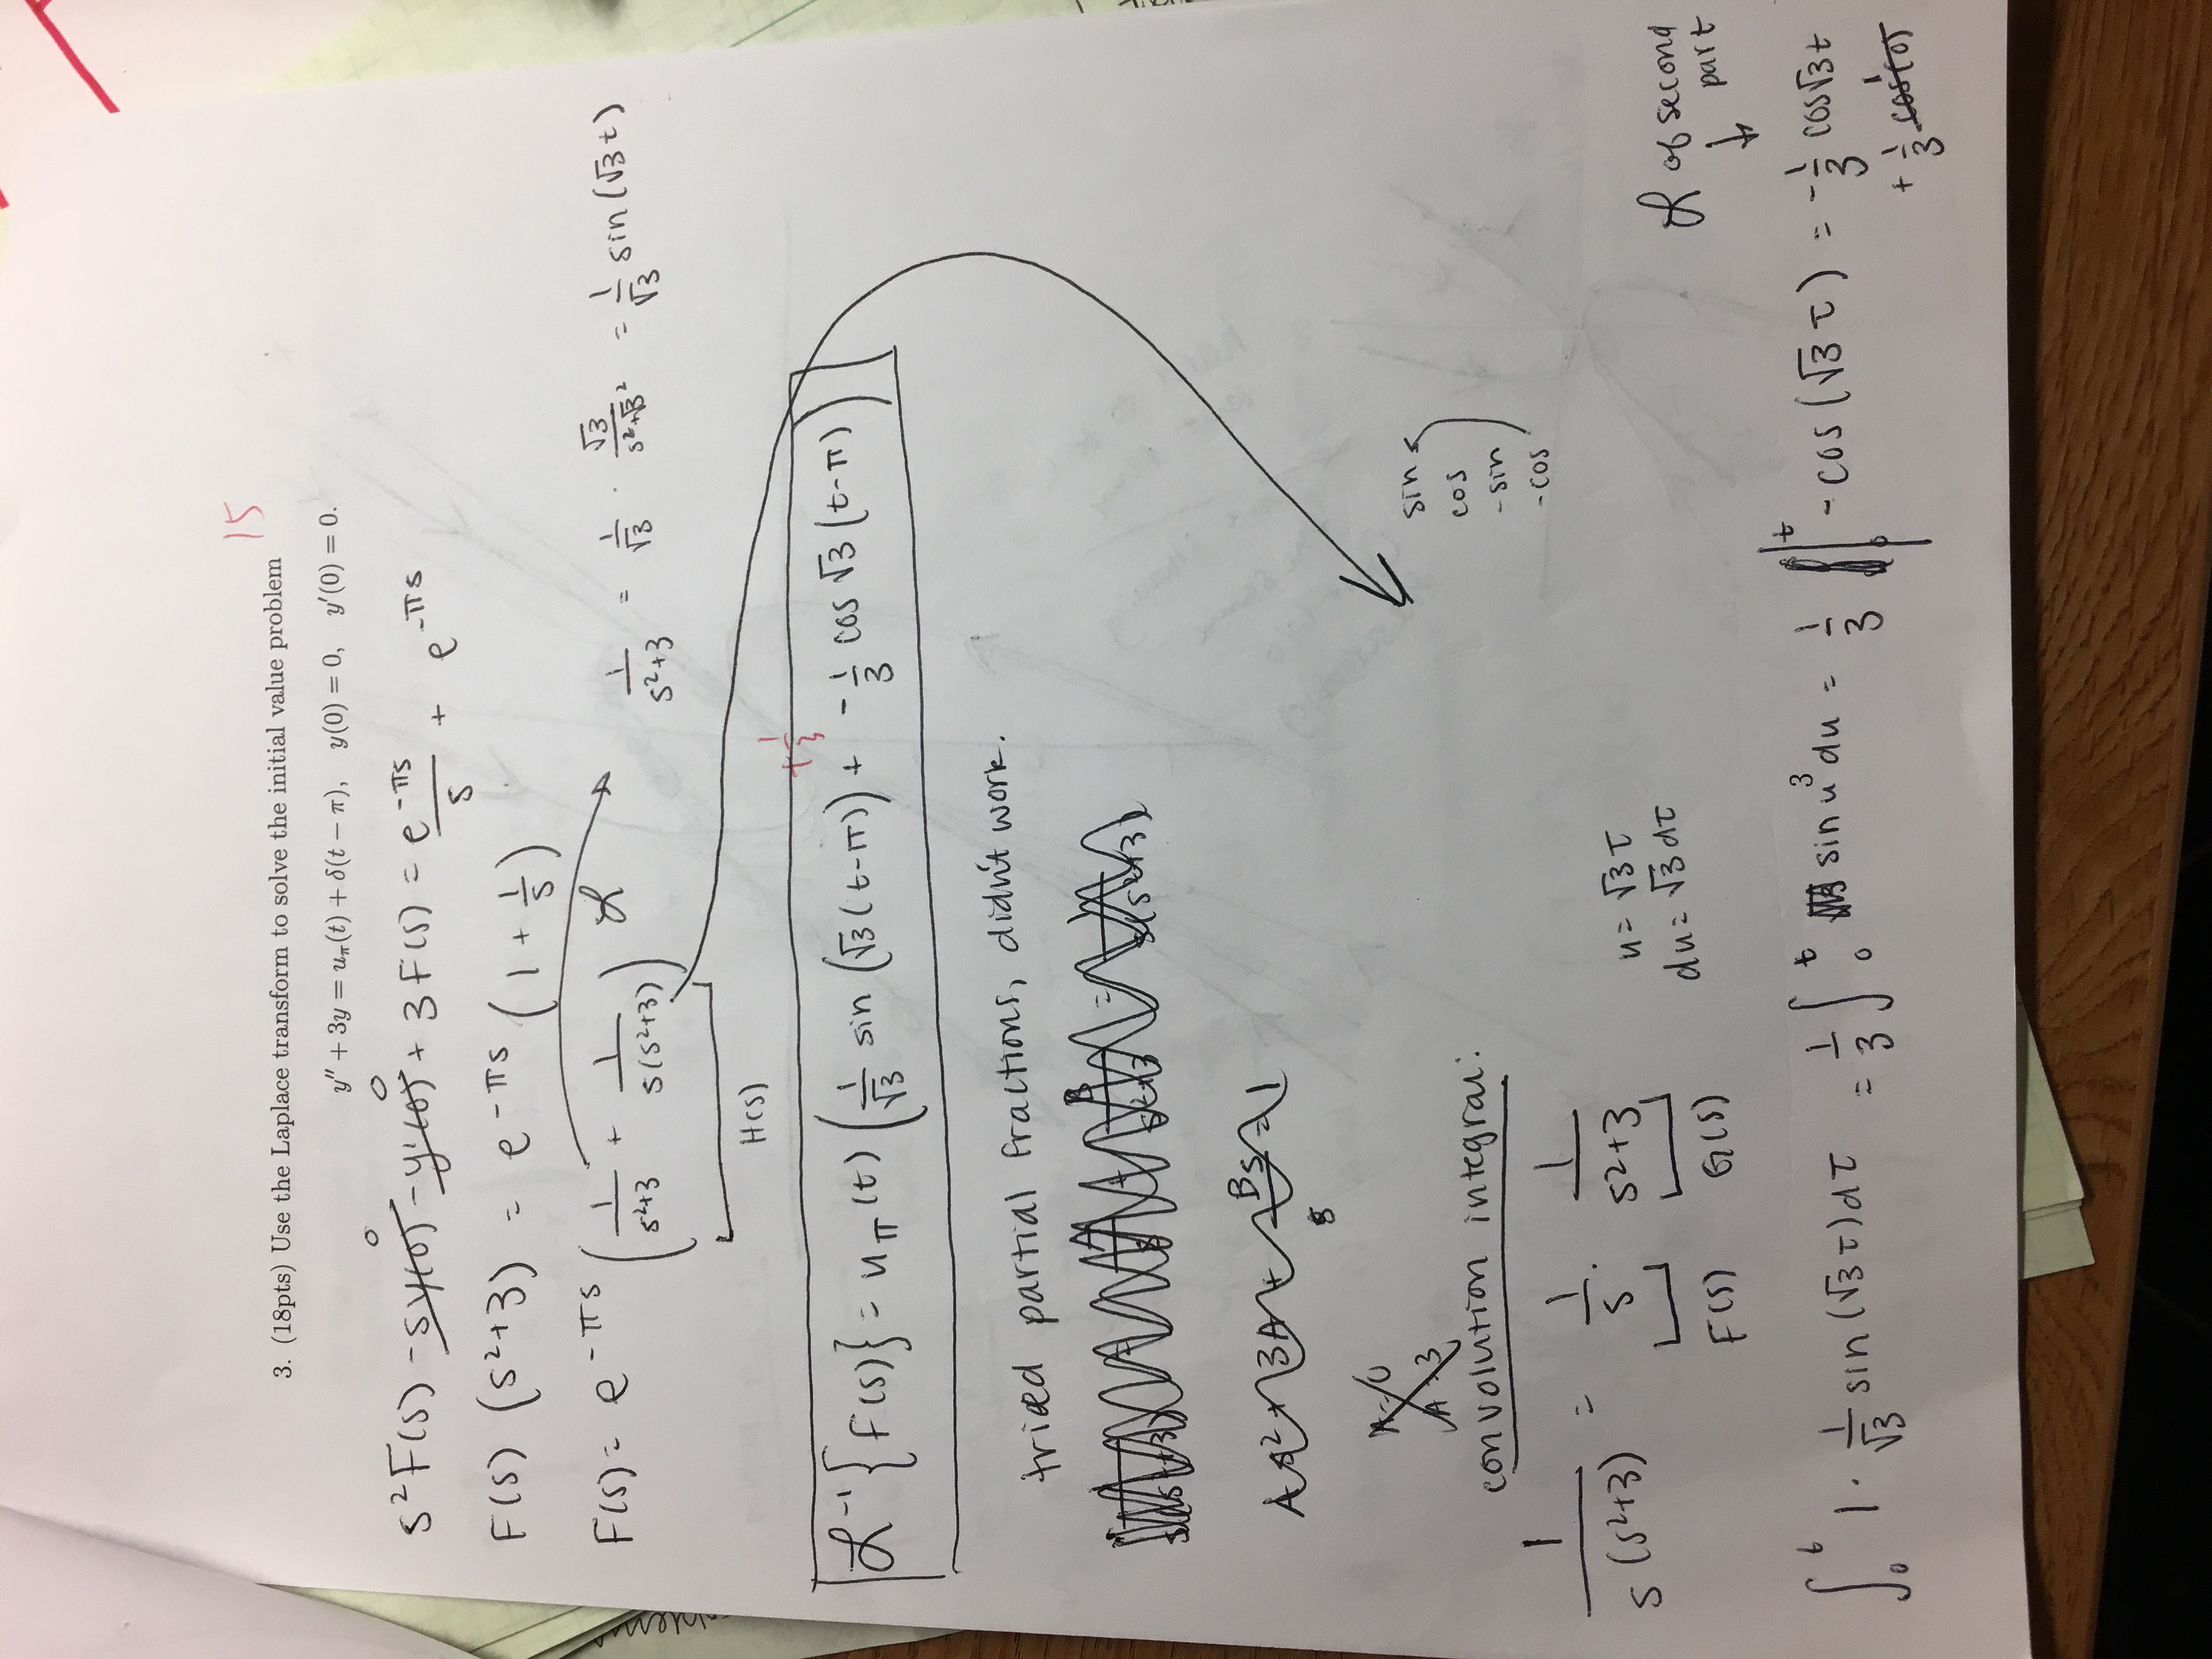 15
3. (18pts) Use the Laplace transform to solve the initial value problem
y″ + 3y = u_π(t) + δ(t − π), y(0) = 0, y′(0) = 0.
0 0
s²F(s) - sy(0) - y'(0) + 3F(s) = e^{-πs}/s + e^{-πs}
F(s) (s²+3) = e^{-πs} (1 + 1/s)
F(s) = e^{-πs} (1/(s²+3) + 1/(s(s²+3))) ℒ 1/(s²+3) = 1/√3 · √3/(s²+√3²) = 1/√3 sin(√3t)
H(s)
+ 1/3
ℒ⁻¹{F(s)} = u_π(t) (1/√3 sin (√3(t-π)) + -1/3 cos √3(t-π))
tried partial fractions, didn't work.
A/s + B/(s²+3) = 1/(s(s²+3))
As² + 3A + Bs = 1
s
A=0
A 3
convolution integral:
sin
cos
-sin
-cos
1/(s(s²+3)) = 1/s · 1/(s²+3)
F(s) G(s)
u = √3τ
du = √3dτ
ℒ of second
part
∫₀ᵗ 1 · 1/√3 sin(√3τ)dτ = 1/3 ∫₀ᵗ sin u³ du = 1/3 |₀ᵗ -cos(√3τ) = -1/3 cos√3t
+ 1/3 cos(0) 1